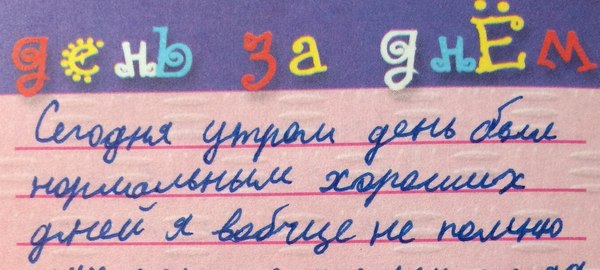 день за днём
Сегодня утром день был
нормальным хороших
дней я вобще не помню